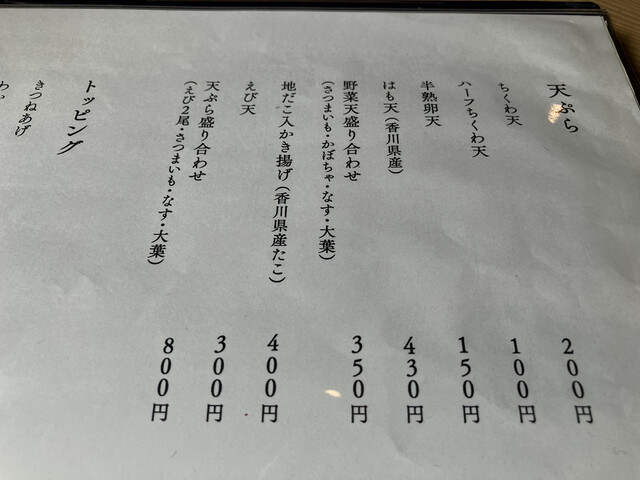 天ぷら
ちくわ天 200円
ハーフちくわ天 100円
半熟卵天 150円
はも天（香川県産） 430円
野菜天盛り合わせ 350円
（さつまいも・かぼちゃ・なす・大葉）
地だこ入かき揚げ（香川県産たこ） 400円
えび天 300円
天ぷら盛り合わせ 800円
（えび2尾・さつまいも・なす・大葉）
トッピング
きつねあげ